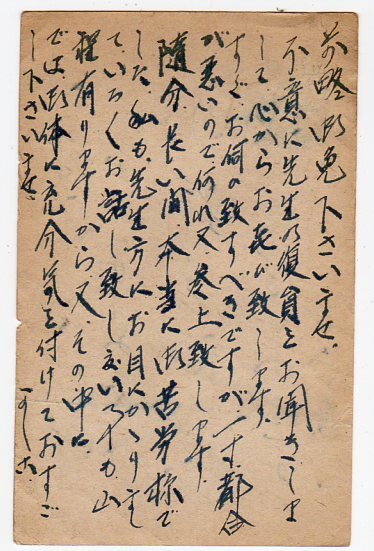 前略御免下さいませ、
不意に先生の復員をお聞きしま
して心からお喜び致します。
すぐお伺の致すべきですが、一寸都合
が悪いので何れ又参上致します
随分長い間本当に御苦労様で
した 私も先生方にお目にかゝりまし
ていろ〳〵お話し致し度いことも山
程有りますから又その中に
では御体に充分気を付けておすご
し下さいませ、